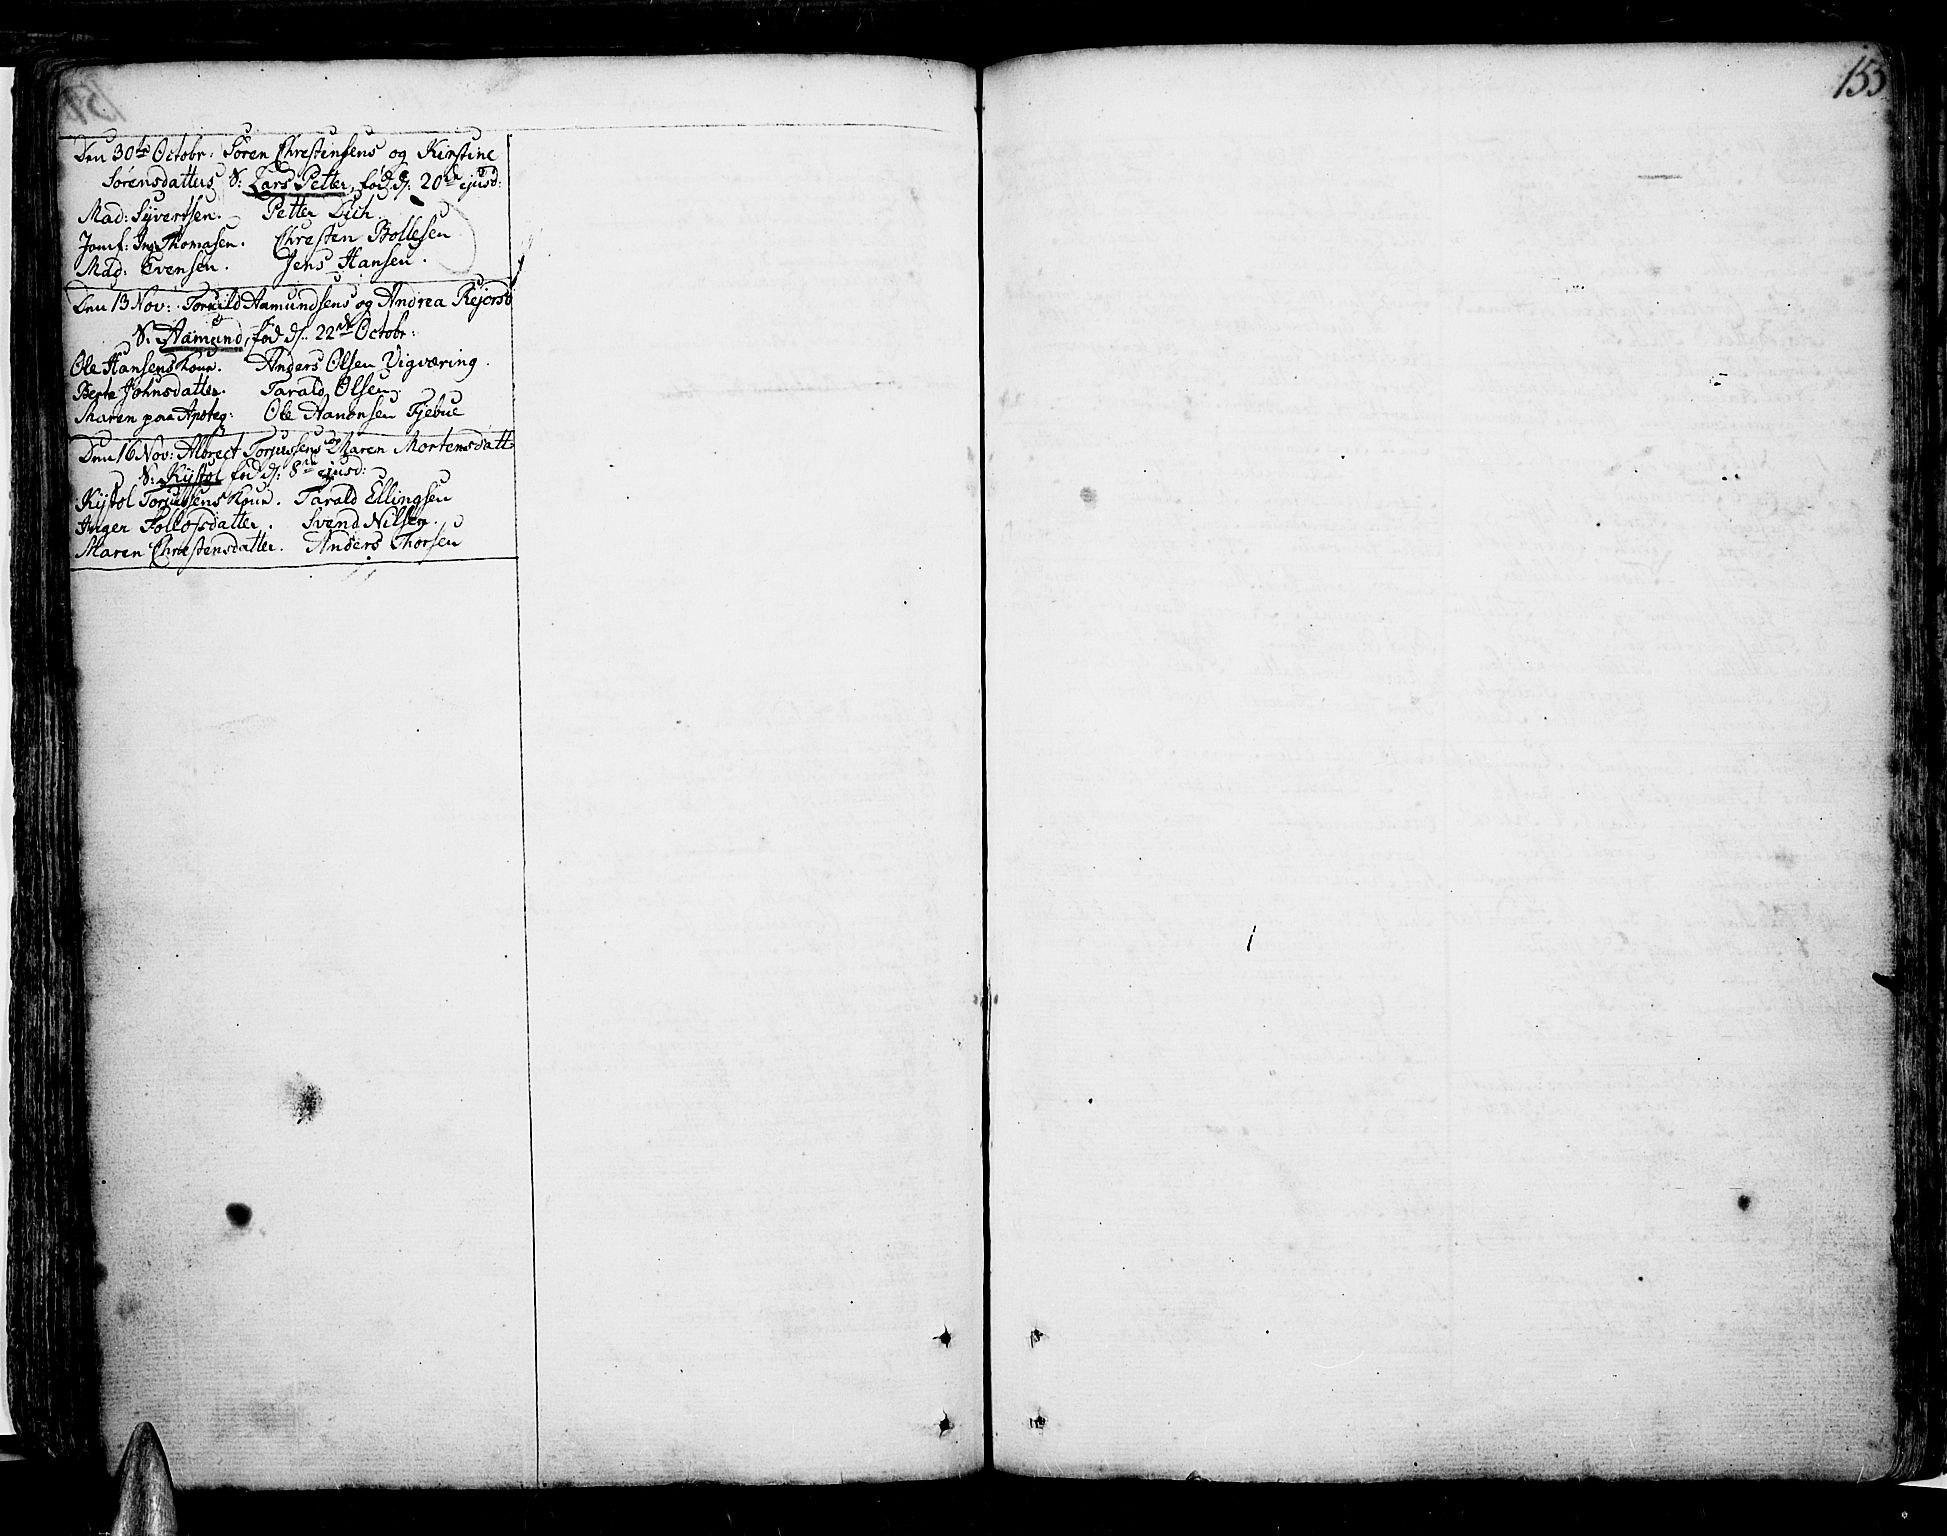 155
Den 30te Octobr: Sören Chrestensens og Kirstine
Sörensdatters S: Lars Petter, föd d: 20de ejusd:
Mad: Syvertsen. Petter Lych
Jomf: Thomasen. Chresten Bollesen
Mad: Evensen. Jens Hansen.
Den 13 Nov: Torkild Aamundsens og Andrea Rejersd
S: Aamund, föd d: 22de Octobr:
Ole Hansens Kone. Anders Olsen Vigværing.
Berte Johnsdatter. Tarald Olsen.
Maren paa Apoteg: Ole Aanonsen Fjebue
Den 16 Nov: Albrect Torjussens og Maren Mortensdatt
S: Kistol föd d: 8de ejusd:
Kistol Torjussens Kone. Tarald Ellingsen
Inger Follofsdatter. Svend Nilsen.
Maren Chrestensdatter. Anders Thorsen